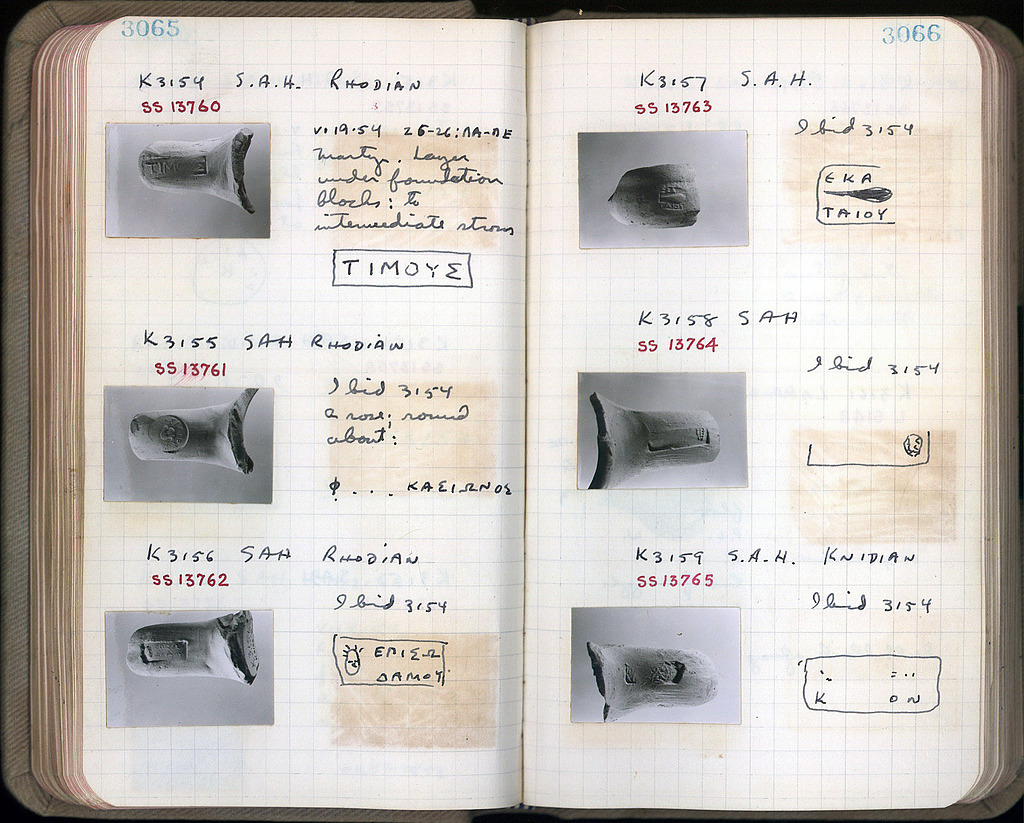 3065
K3154 S.A.H. RHODIAN
SS 13760
VI 19·54 25-26:ΛΑ-ΛΕ
Martyr. Layer
under foundation
blocks: to
intermediate stroses
ΤΙΜΟΥΣ
K3155 SAH RHODIAN
SS 13761
Ibid 3154
a rose; round
about:
φ . . . ΚΑΣΙΩΝΟΣ
K3156 SAH RHODIAN
SS 13762
Ibid 3154
ΕΠΙΣΩ
ΔΑΜΟΥ
3066
K3157 S.A.H.
SS 13763
Ibid 3154
ΕΚΑ
ΤΑΙΟΥ
K3158 SAH
SS 13764
Ibid 3154
K3159 S.A.H. KNIDIAN
SS 13765
Ibid 3154
Κ ΟΝ